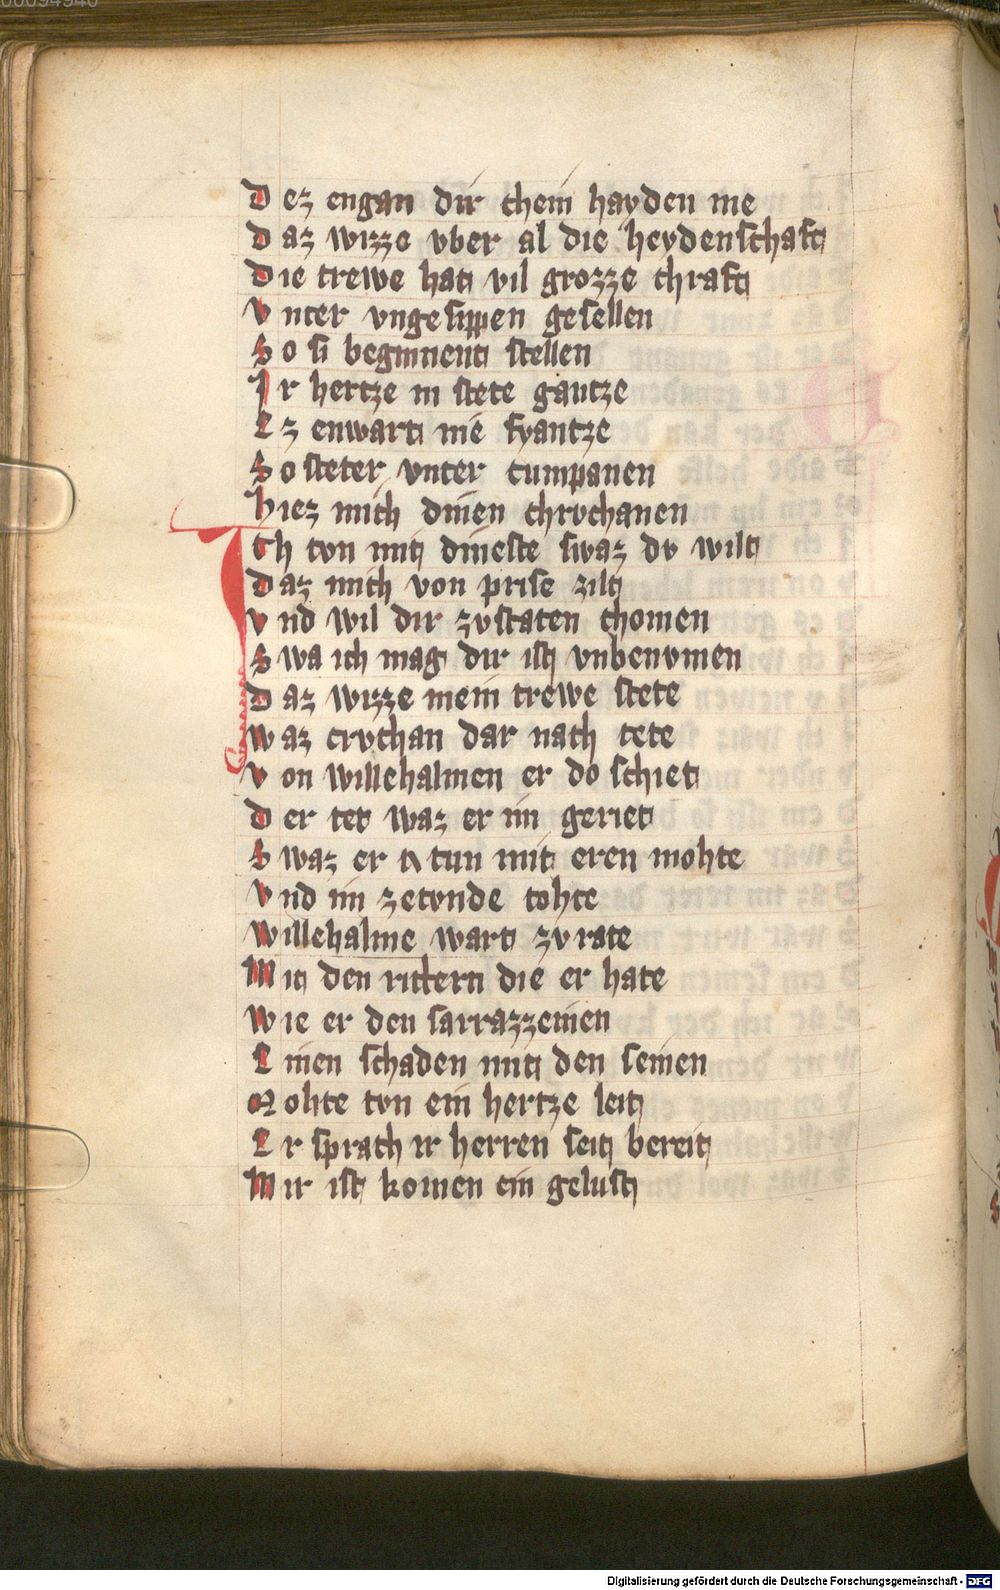 00094940
Dez engan dir chein hayden nie
Daz wizze vber al die heydenschaft
Die trewe hat vil grozze chraft
Vnter vngesippen gesellen
So si beginnent stellen
Ir hertze in stete gantze
Ez enwart nie fyantze
So steter vnter cumpanen
Hiez mich dinen chrvchanen
Ich tvn mit dineste swaz dv wilt
Daz mich von prise zilt
Vnd wil dir zvstaten chomen
Swa ich mag dir ist vnbenvmen
Daz wizze mein trewe stete
Waz crvchan dar nach tete
Von willehalmen er do schiet
Der tet waz er im geriet
Swaz er tun mit eren mohte
Vnd im zetvnde tohte
Willehalme wart zv rate
Mit den rittern die er hate
Wie er den sarrazzeinen
Einen schaden mit den seinen
Mohte tvn ein hertze leit
Er sprach ir herren seit bereit
Mir ist komen ein gelust
Digitalisierung gefördert durch die Deutsche Forschungsgemeinschaft - DFG